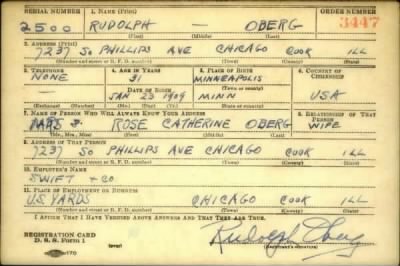 SERIAL NUMBER 1. NAME (Print) ORDER NUMBER
2500 RUDOLPH — OBERG 3447
(First) (Middle) (Last)
2. ADDRESS (Print)
7237 SO PHILLIPS AVE CHICAGO COOK ILL
(Number and street or R. F. D. number) (Town) (County) (State)
3. TELEPHONE 4. AGE IN YEARS 5. PLACE OF BIRTH 6. COUNTRY OF CITIZENSHIP
NONE 31 MINNEAPOLIS
DATE OF BIRTH (Town or county)
JAN 23 1909 MINN USA
(Exchange) (Number) (Mo.) (Day) (Yr.) (State or country)
7. NAME OF PERSON WHO WILL ALWAYS KNOW YOUR ADDRESS 8. RELATIONSHIP OF THAT PERSON
MRS ROSE CATHERINE OBERG WIFE
(Mr., Mrs., Miss) (First) (Middle) (Last)
9. ADDRESS OF THAT PERSON
7237 SO PHILLIPS AVE CHICAGO COOK ILL
(Number and street or R. F. D. number) (Town) (County) (State)
10. EMPLOYER'S NAME
SWIFT + CO
11. PLACE OF EMPLOYMENT OR BUSINESS
U.S. YARDS CHICAGO COOK ILL
(Number and street or R. F. D. number) (Town) (County) (State)
I AFFIRM THAT I HAVE VERIFIED ABOVE ANSWERS AND THAT THEY ARE TRUE.
REGISTRATION CARD
D. S. S. Form 1 Rudolph Oberg
(Registrant's signature)